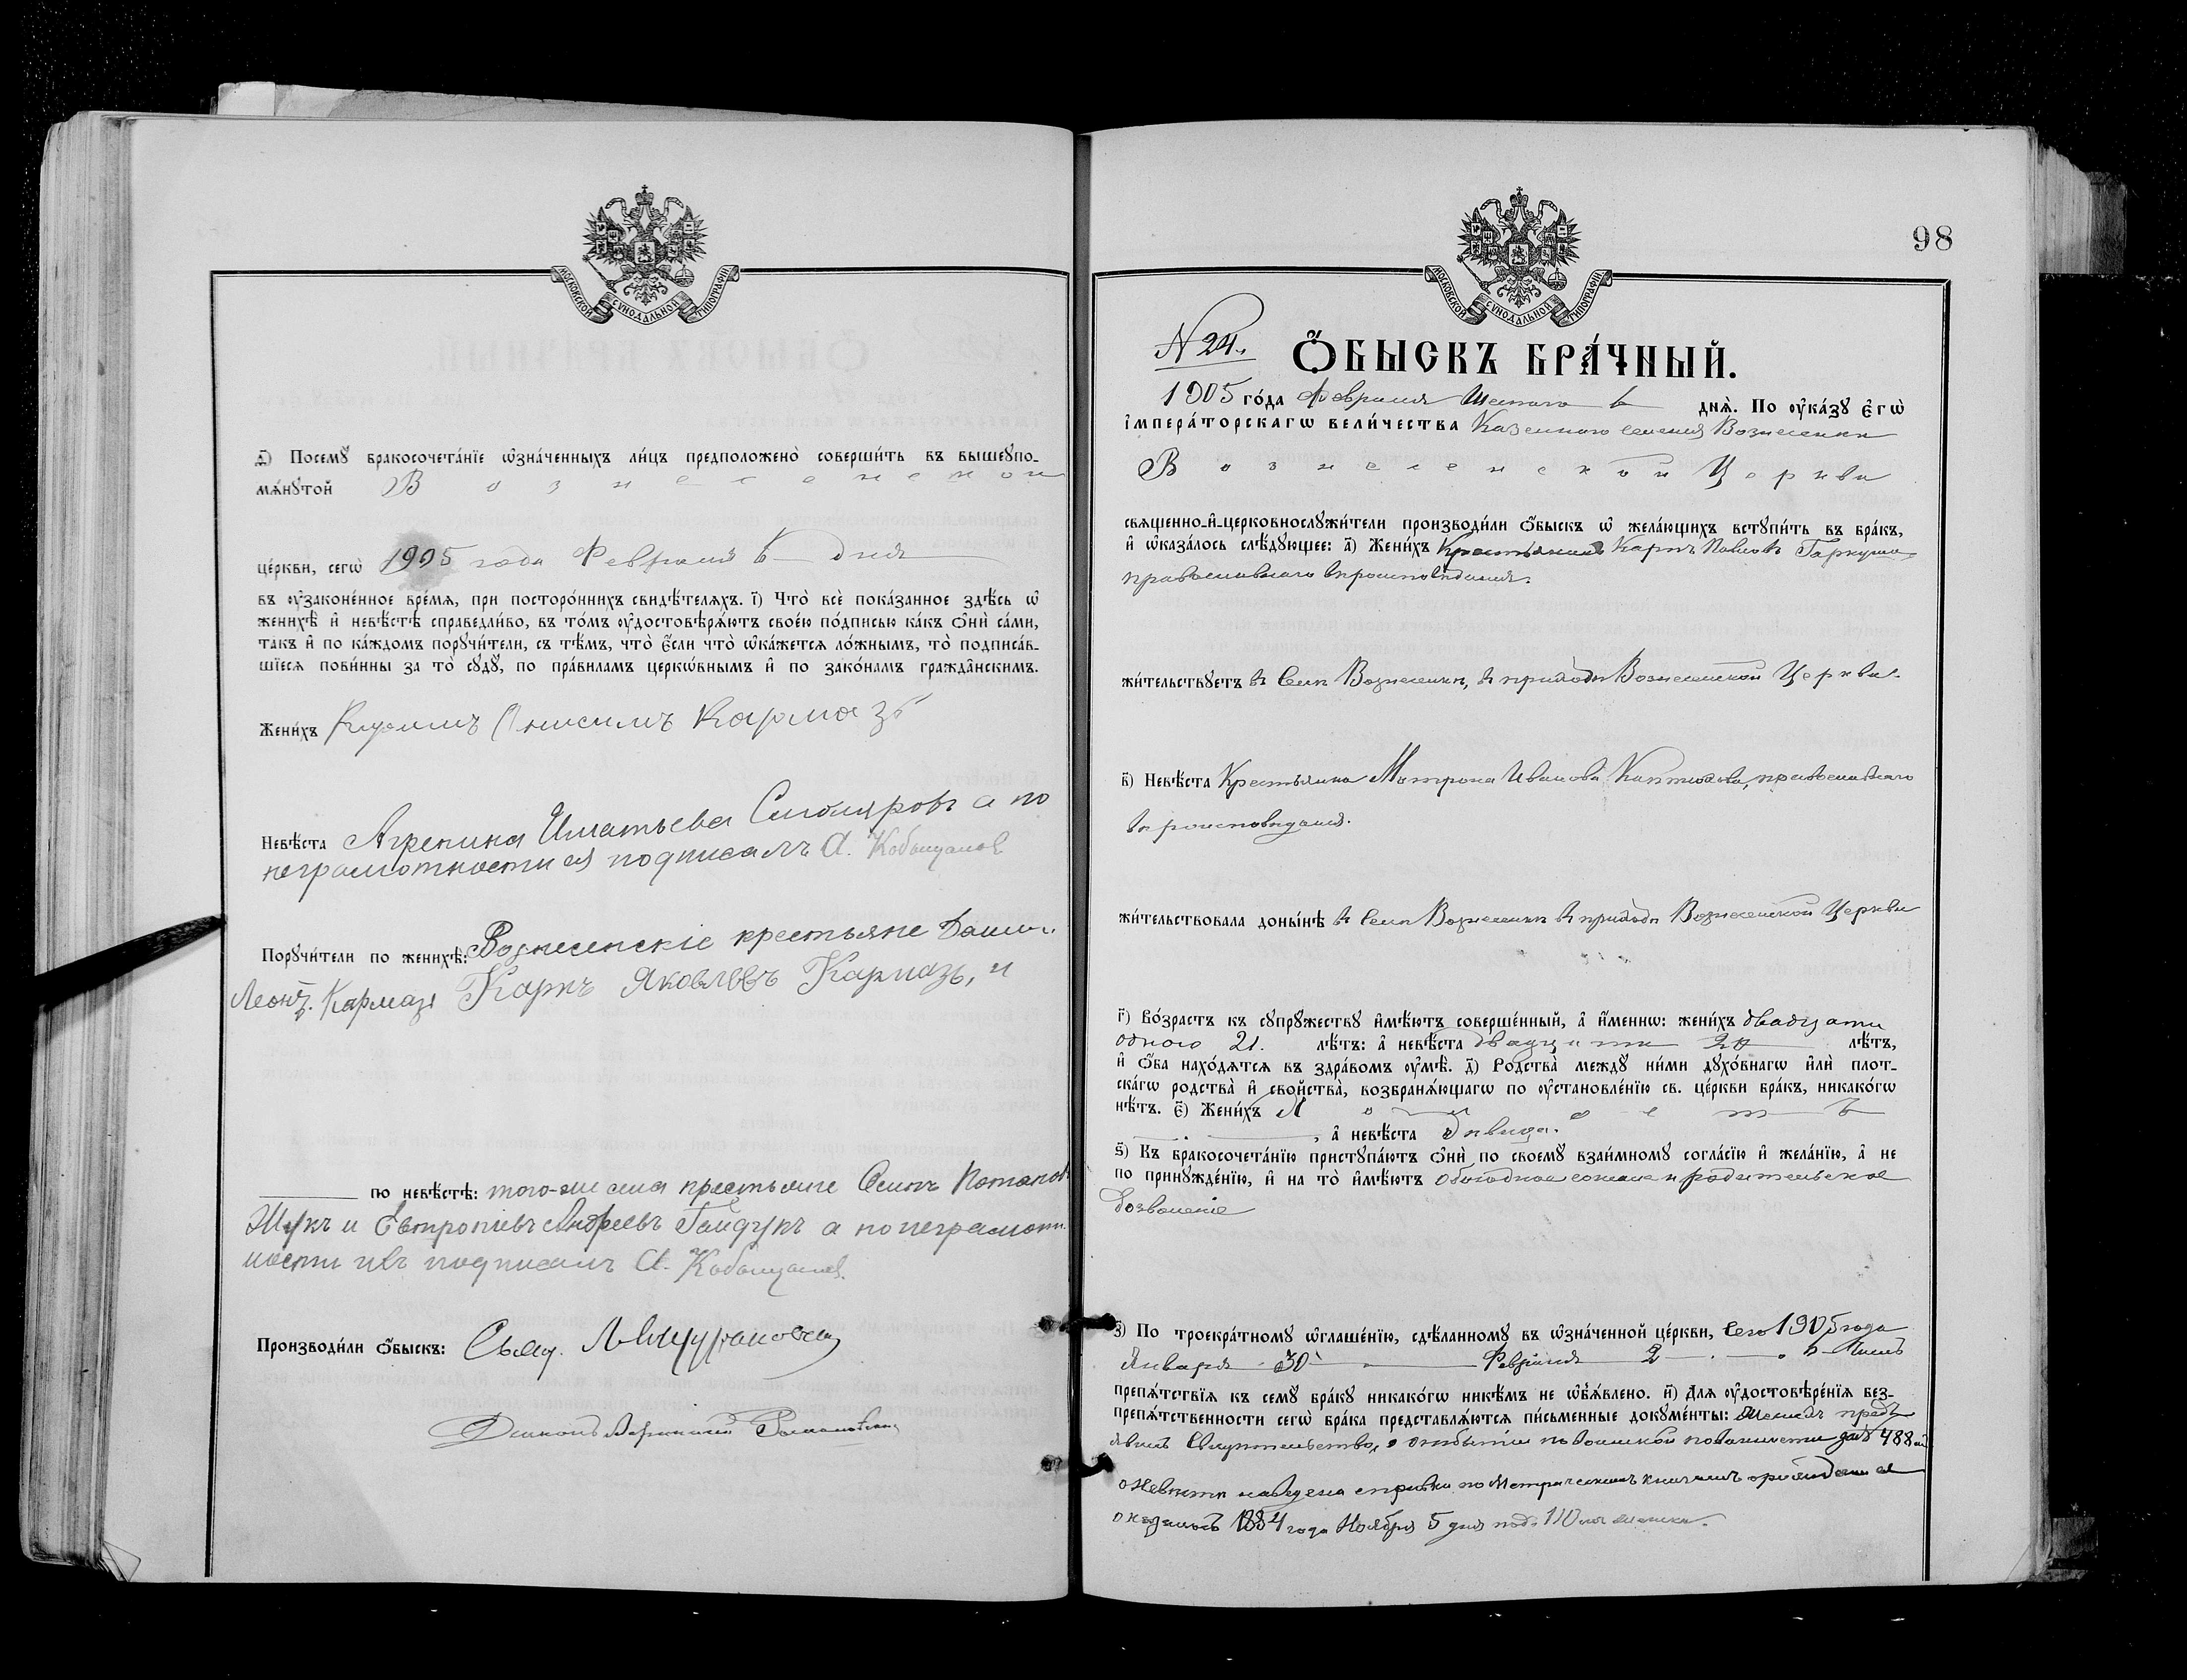 МОСКОВСКОЙ СѴНОДАЛЬНОЙ ТИПОГРАФІИ
ѳ҃) Посемꙋ̀ бракосочета́нїе ѡ҆зна́ченныхъ ли́цъ предположено̀ соверши́ть въ вышеꙋпо-
мѧ́нꙋтой Вознесенской
це́ркви, сегѡ̀ 1905 года Февраля 6 дня
въ ᲂу҆зако́не́нное вре́мѧ, при посторо́ннихъ свидѣ́телѧхъ. і҃) Что̀ всѐ пока́занное здѣ́сь ѡ҆
женихѣ̀ и҆ невѣ́стѣ справедли́во, въ то́мъ ᲂу҆достовѣрѧ́ютъ свое́ю по́дписью ка́къ ѻ҆нѝ са́ми,
та́къ и҆ по ка́ждомъ порꙋчи́тели, съ тѣ́мъ, что̀ є҆́сли что̀ ѡ҆ка́жетсѧ ло́жнымъ, то̀ подписа́в-
шїесѧ пови́нны за то̀ сꙋдꙋ̀, по пра́виламъ церко́внымъ и҆ по зако́намъ гражда́нскимъ.
Жени́хъ Онисимъ Кармазъ
Невѣ́ста Агрепина Игнатьева Столярова а по
неграмотности ея подписалъ А. Кобыщановъ
Порꙋчи́тели по женихѣ̀: Вознесенскіе крестьяне
Леонт. Кармазъ Карпъ Яковлевъ Кармазь, и
по невѣ́стѣ: того-же села крестьяне Осипъ Потапов
Шукъ и Евтропіевъ Андреевъ Гайдукъ а по неграмотн
ности ихъ подписалъ А. Кобыщановъ.
Производи́ли ѻ҆́быскъ: Свящ.
Диаконъ
98
МОСКОВСКОЙ СѴНОДАЛЬНОЙ ТИПОГРАФІИ
N 24.
Ѻ҆́БЫСКЪ БРА́ЧНЫЙ.
1905 го́да Февраля Шестого 6 днѧ̀. По ᲂу҆ка́зꙋ є҆гѡ̀
і҆мпера́торскагѡ вели́чества Казенного селенія Вознесенки
Вознесенской Церкви
свѧще́нно-и҆-церковнослꙋжи́тели производи́ли ѻ҆́быскъ ѡ҆ жела́ющихъ встꙋпи́ть въ бра́къ,
и҆ ѡ҆каза́лось слѣ́дꙋющее: а҃) Жени́хъ Крестьянинъ Карпъ Павловъ Гаркуша,
православнаго вѣроисповѣданія.
жи́тельствꙋетъ в селѣ Вознесенкѣ, в приходѣ Вознесенской Церкви.
в҃) Невѣ́ста Крестьянка Матрона Иванова Каптюхова, православнаго
вѣроисповѣданія.
жи́тельствовала доны́нѣ в селѣ Вознесенкѣ в приходѣ Вознесенской Церкви
г҃) Во́зрастъ къ сꙋпрꙋ́жествꙋ и҆мѣ́ютъ соверше́нный, а҆ и҆́меннѡ: жени́хъ двадцати
одного 21. лѣ́тъ: а҆ невѣ́ста двадцати 20 лѣ́тъ,
и҆ ѻ҆́ба нахо́дѧтсѧ въ здра́вомъ ᲂу҆мѣ̀. д҃) Родства̀ междꙋ̀ ни́ми дꙋхо́внагѡ и҆лѝ плот-
ска́гѡ родства̀ и҆ сво́йства̀, возбранѧ́ющагѡ по ᲂу҆становле́нїю св. це́ркви бра́къ, никако́гѡ
нѣ́тъ. є҃) Жени́хъ Холостъ
, а҆ невѣ́ста дѣвица.
ѕ҃) Къ бракосочета́нїю пристꙋпа́ютъ ѻ҆нѝ по своемꙋ̀ взаи́мномꙋ согла́сїю и҆ жела́нїю, а҆ не
по принꙋжде́нїю, и҆ на то̀ и҆мѣ́ютъ обоюдное согласіе и родительское
дозволеніе
з҃) По троекра́тномꙋ ѡ҆глаше́нїю, сдѣ́ланномꙋ въ ѡ҆зна́ченной це́ркви, сего 1905 года
Января 30 Февраля 2
препѧ́тствїѧ къ семꙋ̀ бра́кꙋ никако́гѡ никѣ́мъ не ѡ҆б̾ѧ́влено. и҃) Длѧ ᲂу҆достовѣре́нїѧ без-
препѧ́тственности сегѡ̀ бра́ка представлѧ́ютсѧ пи́сьменные докꙋме́нты: Женихъ предъ
явилъ Свидѣтельство, о отбытіи по воинской повинности за № 488
о Невѣстѣ наведена справка по Метрическимъ книгамъ
оказалось 1884 года Ноября 5 дня под 110